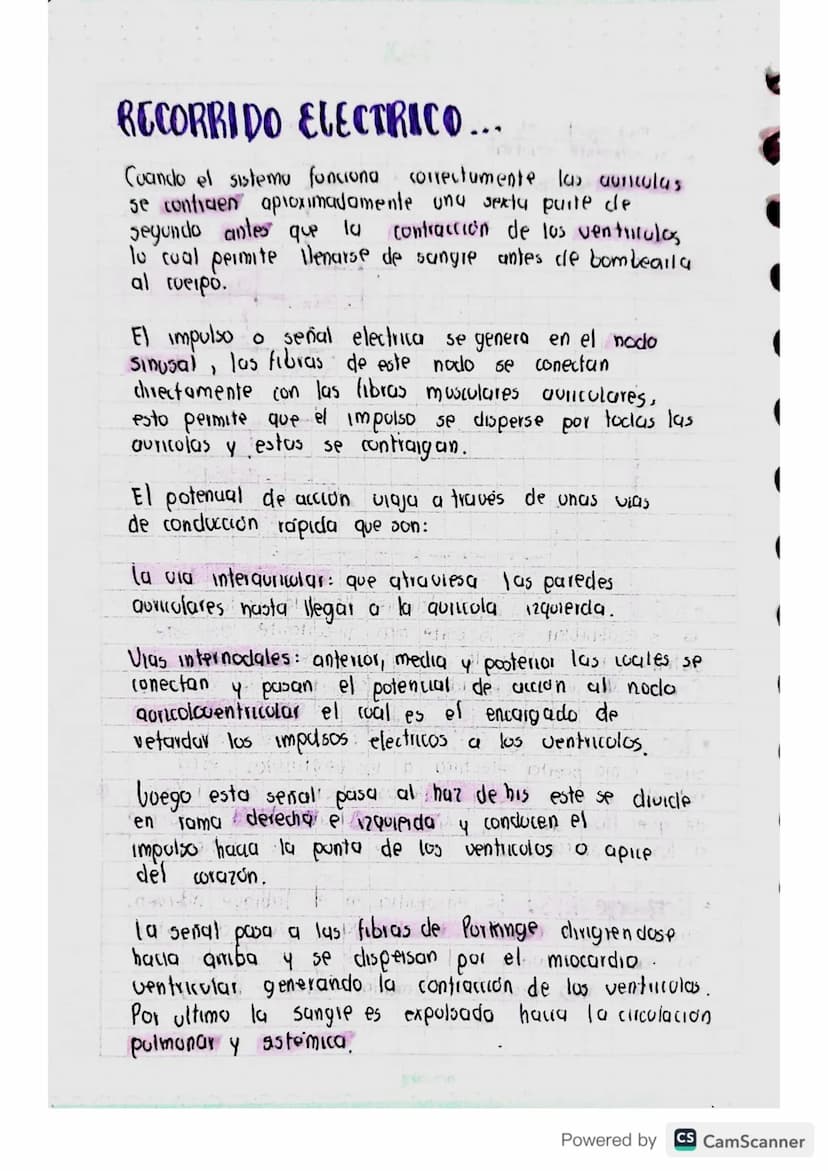 RECORRIDO ELECTRICO...
Cuando el sistema funciona correctamente las auriculas
se contraen aproximadamente una sexta parte de
segundo antes que la contracción de los ventriculos,
lo cual permite llenarse de sangre antes de bombearla
al cuerpo.
El impulso o señal electrica se genera en el nodo
sinusal, las fibras de este nodo se conectan
directamente con las fibras musculares auriculares,
esto permite que el impulso se disperse por todas las
auriculas y estas se contraigan.
El potencial de acción viaja a través de unas vias
de conducción rápida que son:
La via interauricular: que atraviesa las paredes
auriculares hasta llegar a la auricola izquierda.
Vias internodales: anterior, media y posterior las cuales se
conectan y pasan el potencial de acción al nodo
auricoloventricular el cual es el encargado de
retardar los impulsos electricos a los ventriculos.
Luego esta señal pasa al haz de his este se divide
en rama derecha e izquierda y conducen el
impulso hacia la punta de los ventriculos o apice
del corazón.
La señal pasa a las fibras de Purkinge dirigrendose
hacia arriba y se dispersan por el miocardio
ventricular, generando la contracción de los ventriculos.
Por ultimo la sangre es expulsada hacia la circulación
pulmonar y sistémica.
Powered by CS CamScanner